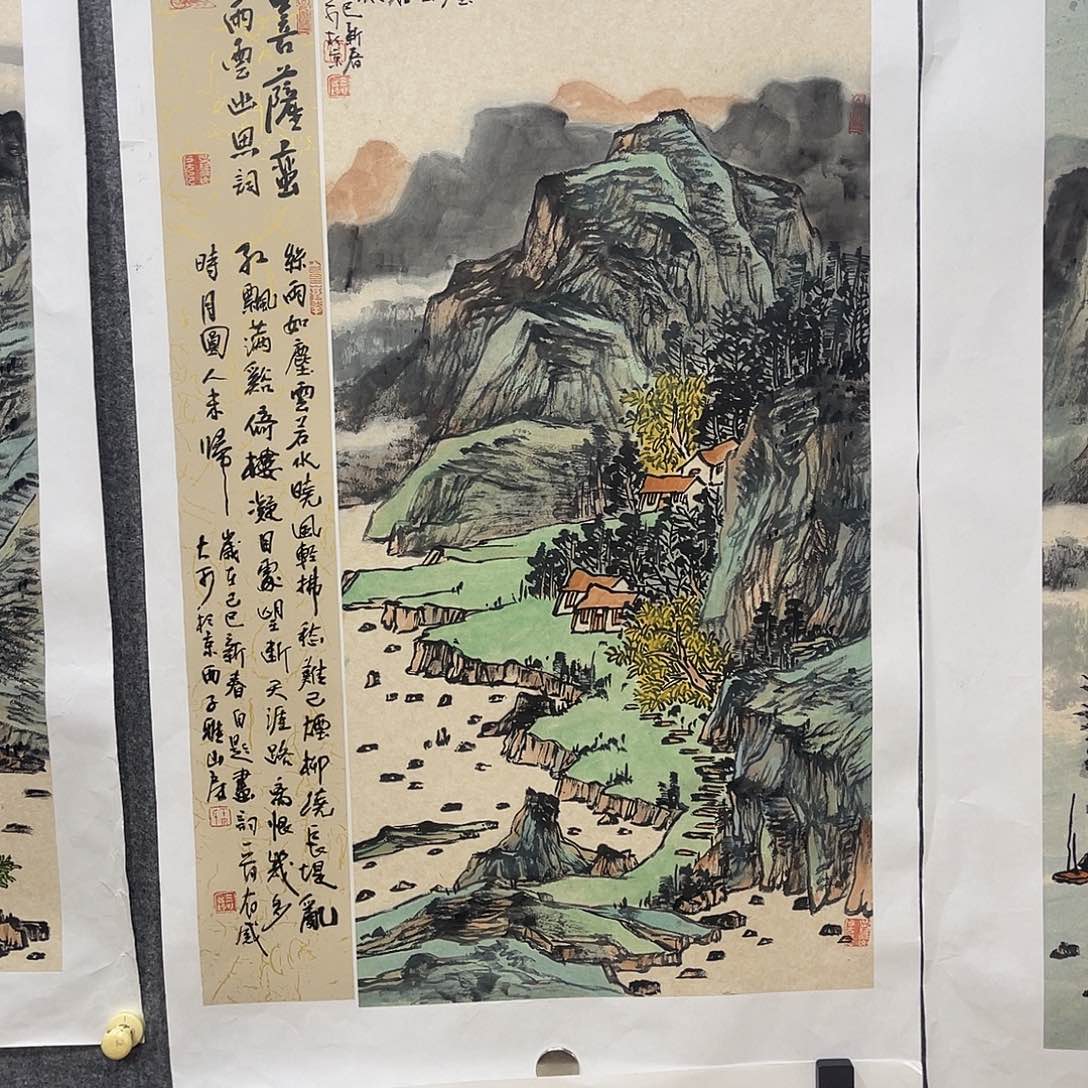 菩薩蠻
雨雲幽思詞
絲雨如塵雲若水曉風輕拂愁難已煙柳繞長堤亂
紅飄滿谿倚樓凝目處望斷天涯路離恨幾多
時月圓人未歸
歲在己巳新春自題畫詞一首有感
大可於京西子雅山房
己巳新春
於京